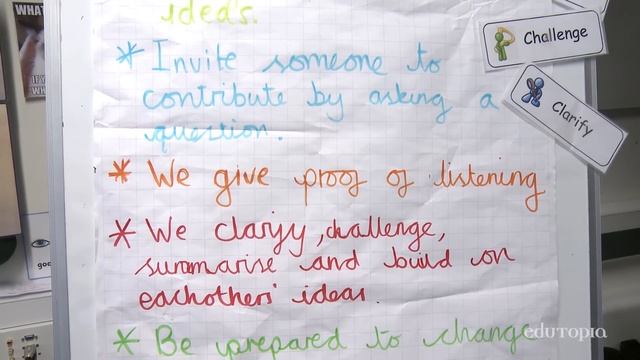 ideas.
* Invite someone to
contribute by asking a
question.
* We give proof of listening
* We clarify, challenge,
summarise and build on
eachothers' ideas.
* Be prepared to change
Challenge
Clarify
WHAT
edutopia